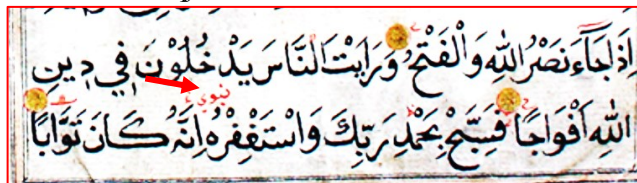 اِذَا جَاۤءَ نَصْرُ اللهِ وَالْفَتْحُ وَرَاَيْتَ النَّاسَ يَدْخُلُوْنَ فِي دِينِ
نبوي
اللهِ اَفْوَاجًا فَسَبِّحْ بِحَمْدِ رَبِّكَ وَاسْتَغْفِرْهُ اِنَّهُ كَانَ تَوَّابًا